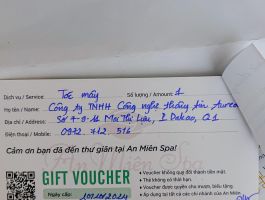 Dịch vụ / Service: Tóc mây Số lượng / Amount: 1
Họ tên / Name: Công ty TNHH Công nghệ thông tin Aureo
Địa chỉ / Address: Số 7-9-11 Mai Thị Lựu, P Đakao, Q1
Điện thoại / Mobile: 0972 712 516
Cảm ơn bạn đã đến thư giãn tại An Miên Spa!
An Miên Spa
GIFT VOUCHER
Ngày cấp:
• Voucher không quy đổi thành tiền mặt.
• Thẻ không có thời hạn.
• Voucher được quyền cho mượn, biếu tặng
• Áp dụng tại tất cả các chi nhánh của An Miên